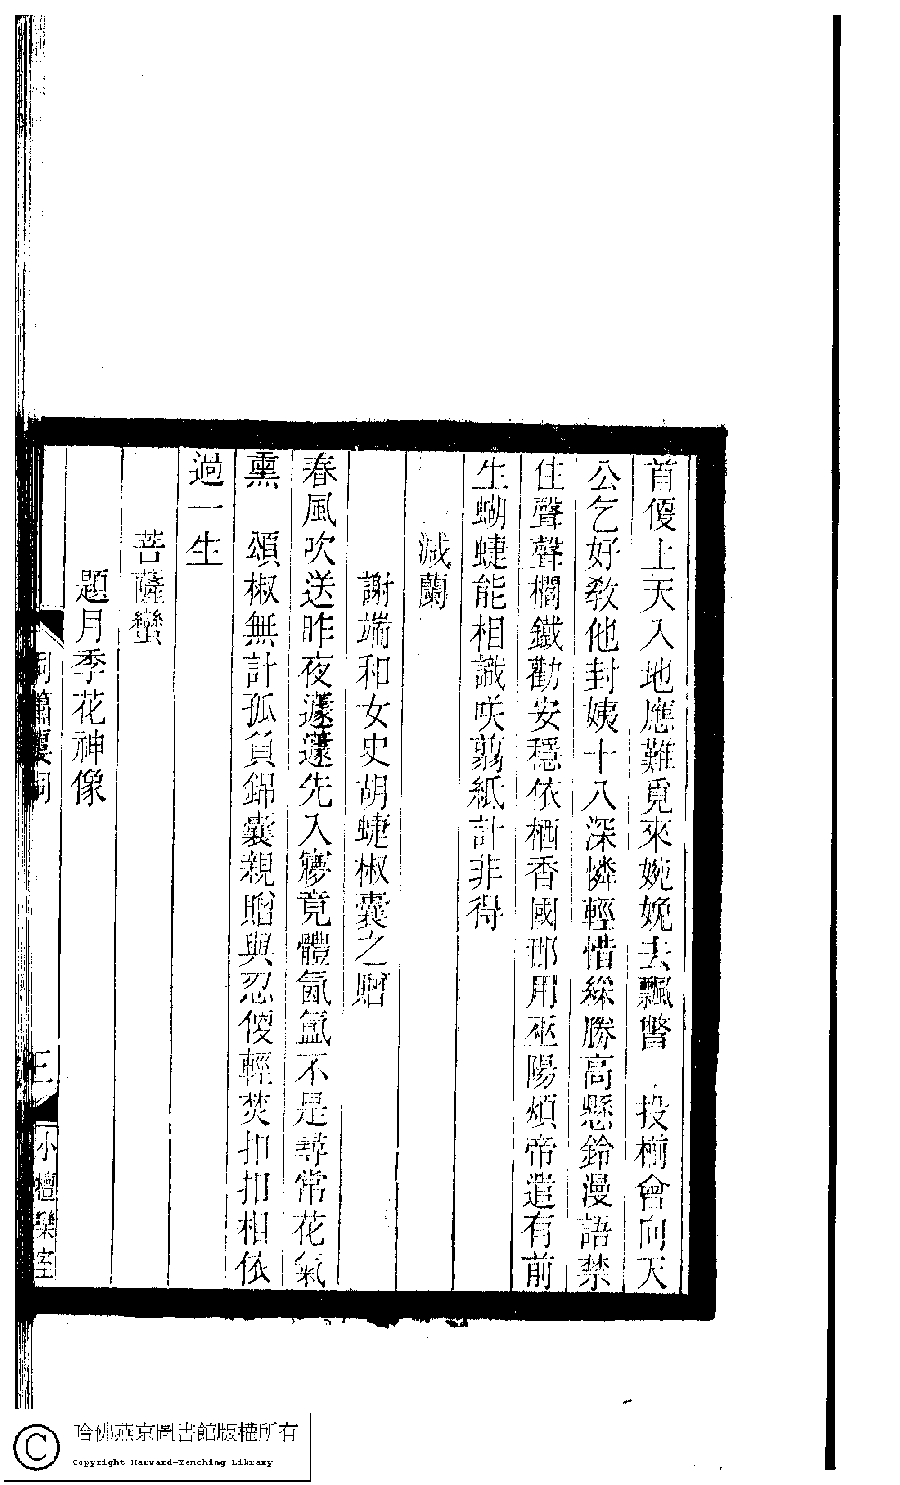 首傻上天入地應難覓來婉娩去飄瞥　投梭會向天
公乞好敎他封姨十八深憐輕惜綵勝高懸鈴漫語禁
住聲聲檐鐵勸安穩依栖香國那用巫陽煩帝遣有前
生蝴蜨能相識咲翦紙計非得
減蘭
謝端和女史胡蜨椒囊之贈
春風吹送昨夜蘧蘧先入夢竟體氤氳不是尋常花氣
熏　頌椒無計孤負錦囊親贈與忍便輕焚扣扣相依
過一生
菩薩蠻
題月季花神像
洞簫樓詞
三
小檀欒室
哈佛燕京圖書館版權所有
Copyright Harvard-Yenching Library